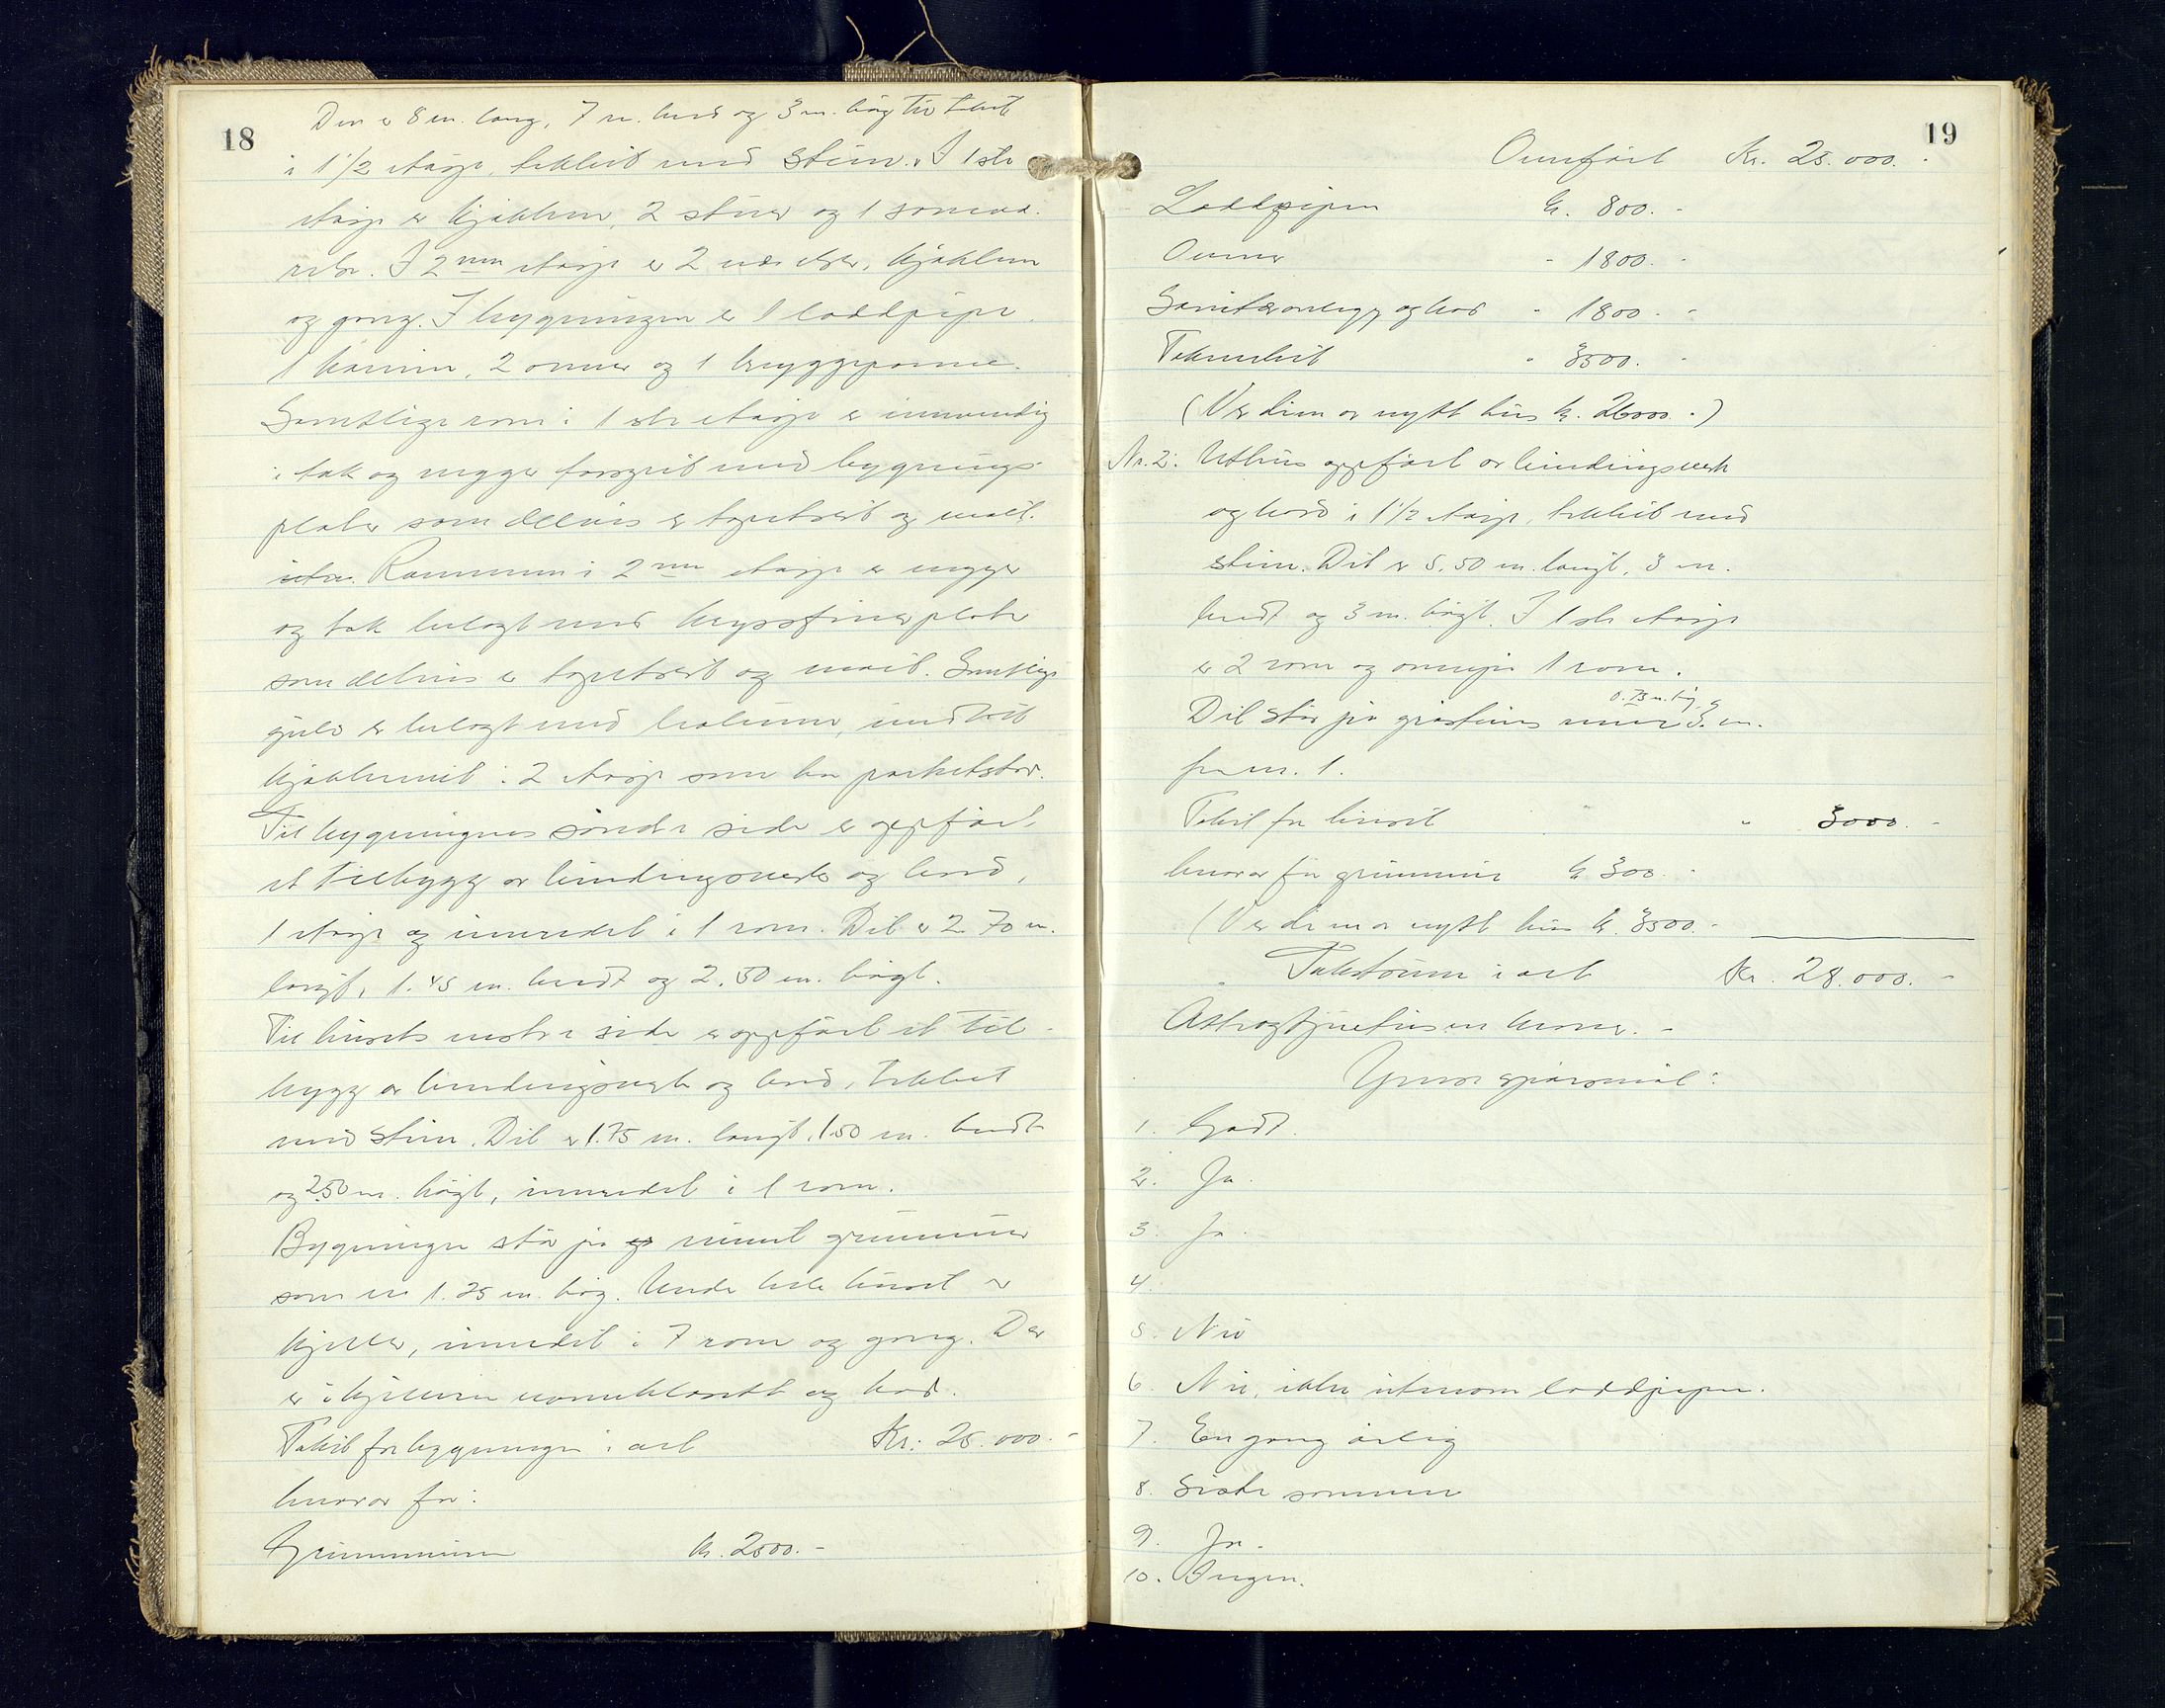 18
Den er 8 m. lang, 7 m. bred og 3 m. høg til taket
i 1 1/2 etasje, tekket med stein. I 1ste
etasje er kjøkken, 2 stuer og 1
I 2nen etasje er 2 værelser, kjøkken
og gang. I bygningen er 1 loddpipe
1 kamin, 2 ovner og 1 bryggepanne.
Samtlige rom i 1ste etasje er innvendig
i tak og vegger forsynt med bygnings-
plater som delvis er tapetsert og malt.
Rommene i 2nen etasje er vegger
og tak belagt med kryssfinerplater
som delvis er tapetsert og malt. Samtlige
gulv er belagt med balatum, undtatt
kjøkkenet i 2 etasje som har parketstav.
Til bygningens søndre side er oppført
et tilbygg av bindingsverk og bord,
1 etasje og innredet i 1 rom. Det er 2.70 m.
langt, 1.45 m. bredt og 2.50 m. høgt.
Til husets vestre side er oppført et til-
bygg av bindingsverk og bord, tekket
med stein. Det er 1.75 m. langt, 1.50 m. bredt
og 2.50 m. høgt, innredet i 1 rom.
Bygningen står på muret grunnmur
som er 1.25 m. høg. Under hele huset er
kjeller, innredet i 7 rom og gang. Der
er i kjelleren vannklosett og bad.
Takst for bygningen i alt Kr. 25.000.-
hvorav for:
Grunnmuren kr. 2500.-
19
Overført Kr. 25.000.-
Loddpipen kr. 800.-
Ovner - 1800.-
Sanitæranlegg og bad - 1800.-
Takverket - 3500.-
(Verdien av nytt hus kr. 26000.-)
Nr. 2: Uthus oppført av bindingsverk
og bord i 1 1/2 etasje, tekket med
stein. Det er 5.50 m. langt, 3 m.
bredt og 3 m. høgt. I 1ste etasje
er 2 rom og ovenpå 1 rom.
0.75 m. høg, og
Det står på gråsteins mur 3. m.
fra nr. 1.
Takst for huset - 3000.-
hvorav for grunnmur kr 300.-
(Verdien av nytt hus kr. 3500.-
Takstsum i alt Kr. 28.000.-
Åtteogtjuetusen kroner.-
spørsmål:
1. Godt.
2. Ja.
3. Ja.
4.
5. Nei
6. Nei, ikke utenom loddpipen.
7. En gang årlig
8. Siste sommer
9. Ja.
10. Ingen.